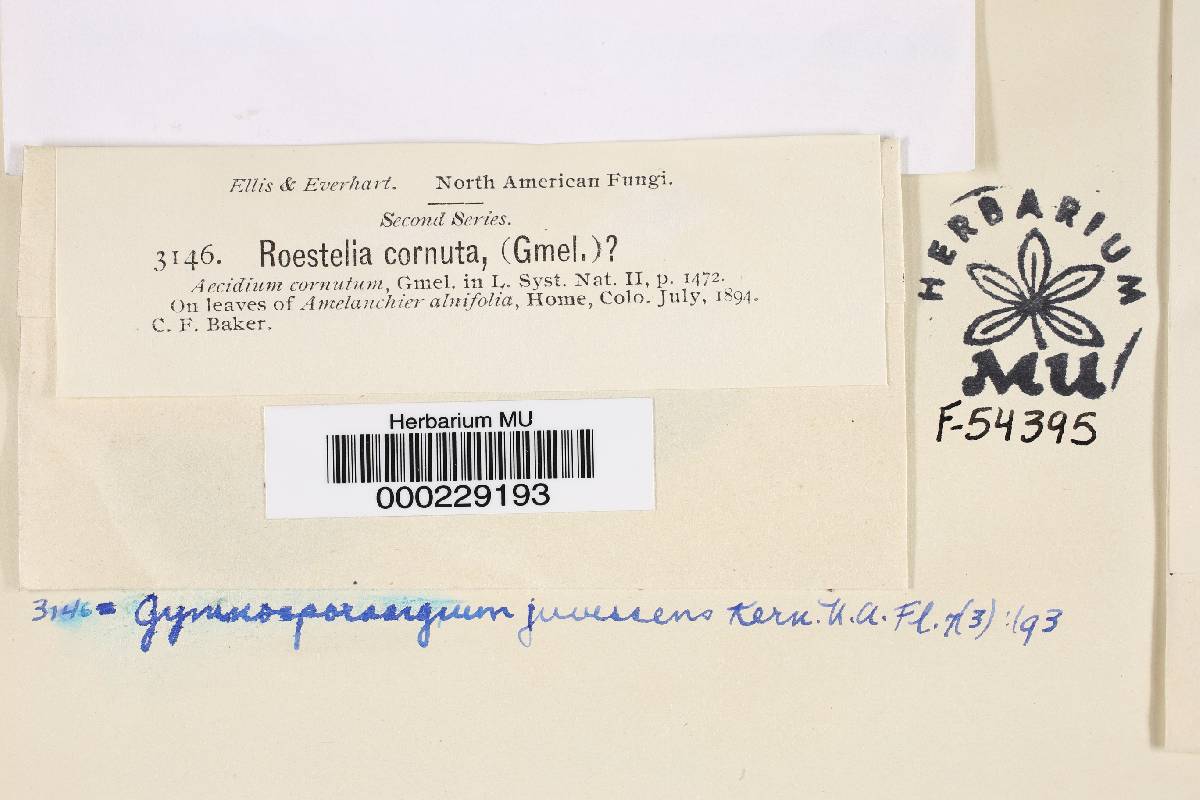 Ellis & Everhart. North American Fungi.
Second Series.
3146. Roestelia cornuta, (Gmel.)?
Aecidium cornutum, Gmel. in L. Syst. Nat. II, p. 1472.
On leaves of Amelanchier alnifolia, Home, Colo. July, 1894.
C. F. Baker.
HERBARIUM
MU
F-54395
Herbarium MU
000229193
3146 = Gymnosporangium juvescens Kern. N. A. Fl. 7(3):193